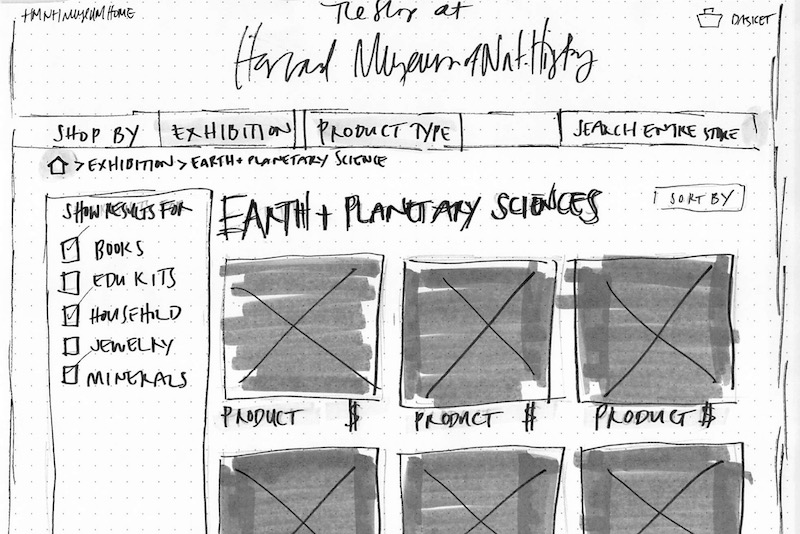 HMNH MUSEUM HOME
The Shop at
Harvard Museum of Nat. History
BASKET
SHOP BY EXHIBITION PRODUCT TYPE SEARCH ENTIRE STORE
> EXHIBITION > EARTH + PLANETARY SCIENCE
SHOW RESULTS FOR
BOOKS
EDU KITS
HOUSEHOLD
JEWELRY
MINERALS
EARTH + PLANETARY SCIENCES
SORT BY
PRODUCT $ PRODUCT $ PRODUCT $